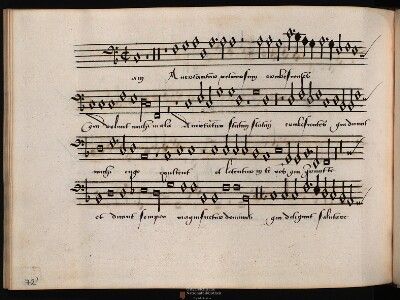 am Avertantur retrorsum erubescentes
Qui volunt michi mala Avertantur statim statim erubescentes qui dicunt
michi euge exultent et letentur in te qui querunt te
et dicant semper magnificetur dominus qui diligunt salutare